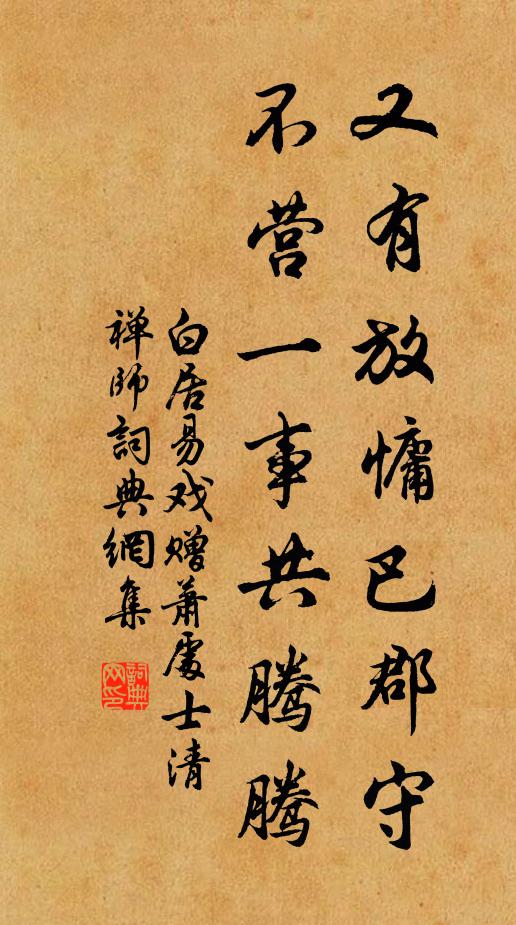 又有放慵巴郡守
不营一事共腾腾
白居易戏赠萧處士清
禅師詞典網集
詞典网印